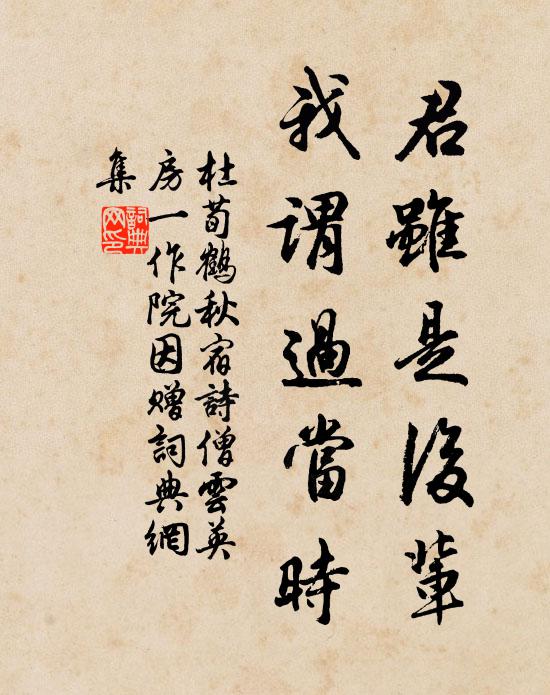 君雖是後輩
我謂過當時
杜荀鶴秋宿詩僧雲英
房一作院因贈詞典網
集
詞典网印